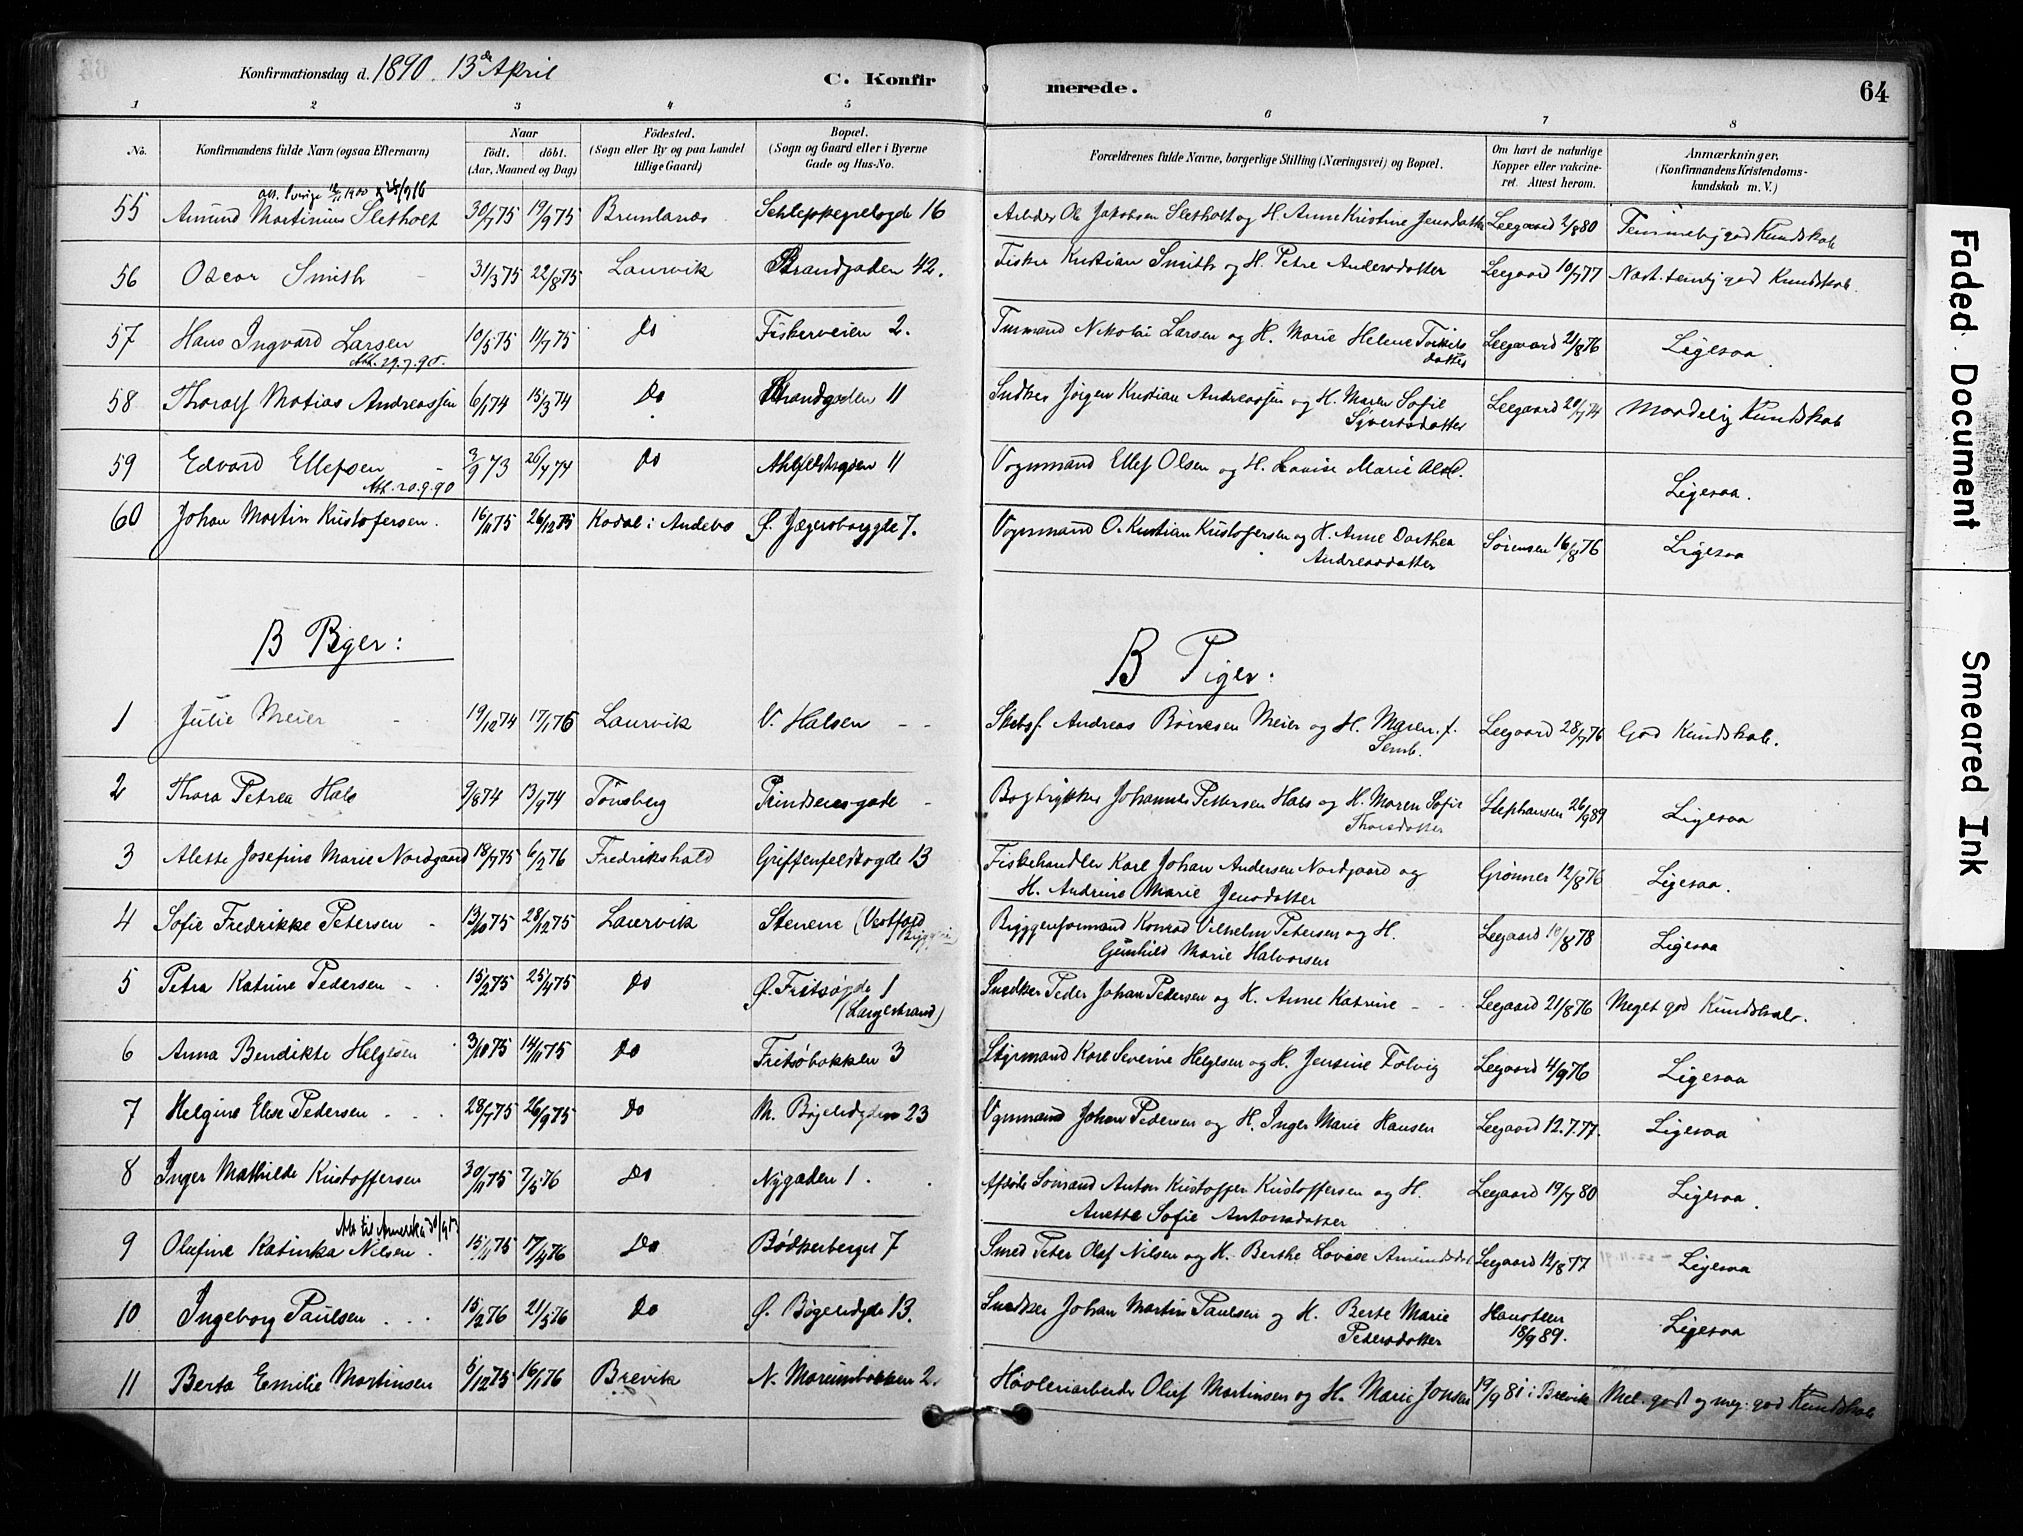 Konfirmationsdag d. 1890. 13de April
C. Konfirmerede.
64
1 2 3 4 5 6 7 8
No.
Konfirmandens fulde Navn (ogsaa Efternavn)
Naar
født. døbt.
(Aar, Maaned og Dag)
Fødested.
(Sogn eller By og paa Landet
tillige Gaard)
Bopæl.
(Sogn og Gaard eller i Byerne
Gade og Hus-No.
Forældrenes fulde Navne, borgerlige Stilling (Næringsvei) og Bopæl.
Om havt de naturlige
Kopper eller vakcine-
ret. Attest herom.
Anmærkninger,
(Konfirmandens Kristendoms-
kundskab m. V.)
55 Amund Martinius Sletholt 30/7 75 19/9 75 Brunlanæs Schleppegrelsgde 16 Arbder Ole Jakobsen Sletholt og H. Anne Kristine Jensdatter Leegaard 2/8 80 Temmelig god Kundskab
56 Oscar Smith 31/3 75 22/8 75 Laurvik Strandgaden 42. Fisker Kristian Smith og H. Petre Andersdatter Leegaard 10/7 77 Næst. temlig god Kundskab.
57 Hans Ingvard Larsen 10/5 75 11/7 75 Do Fiskerveien 2. Turmand Nikolai Larsen og H. Marie Helene Torkels
datter Leegaard 21/8 76 Ligesaa.
Att. 29.7.90.
58 Thoralf Matias Andreassen 6/1 74 15/3 74 Do Strandgaden 11 Snedker Jørgen Kristian Andreassen og H. Maren Sofie
Syvertsdatter Leegaard 20/7 74 Maadelig Kundskab
59 Edvard Ellefsen 3/9 73 26/4 74 Do Ahlefeldtsgden 11 Vognmand Ellef Olsen og H. Lovise Marie Ligesaa.
Att. 20.9.90
60 Johan Martin Kristofersen. 16/11 75 26/12 75 Kodal i Andebo Ø. Jægersborggde 7. Vognmand O. Kristian Kristofersen og H. Anne Dorthea
Andreasdatter Sørensen 16/8 76 Ligesaa
B Piger:
B Piger.
1 Julie Meier 19/12 74 17/1 76 Laurvik V. Halsen Skibsf. Andreas Børresen Meier og H. Maren f.
Semb. Leegaard 28/7 76 God Kundskab.
2 Thora Petrea Hals 9/8 74 13/9 74 Tönsberg Prindsensgade Bogtrykker Johannes Pettersen Hals og H. Maren Sofie
Thorsdatter Stephansen 26/9 89 Ligesaa
3 Alette Josefine Marie Nordgaard 18/7 75 6/2 76 Fredrikshald Griffenfeldtsgde 13 Fiskehandler Karl Johan Andersen Nordgaard og
H. Andrine Marie Jensdatter Grønner 12/8 76 Ligesaa.
4 Sofie Fredrikke Petersen 13/10 75 28/12 75 Laurvik Stenene (Vestfold Bryggeri) Bryggeriformand Konrad Vilhelm Petersen og H.
Gunhild Marie Halvorsen Leegaard 19/8 78 Ligesaa
5 Petra Katrine Pedersen 15/2 75 25/4 75 Do Ø. Fritsøgde 1
(Langestrand) Snedker Peder Johan Pedersen og H. Anne Katrine Leegaard 21/8 76 Meget god Kundskab.
6 Anna Bendikte Helgesen 3/10 75 14/11 75 Do Fritsøbakken 3 Styrmand Karl Severin Helgesen og H. Jensine Tolvig Leegaard 4/9 76 Ligesaa
7 Helgine Elise Pedersen 28/7 75 26/9 75 Do M. Bøgelidgden 23 Vognmand Johan Pedersen og H. Inger Marie Hansen Leegaard 12.7.77. Ligesaa
8 Inger Mathilde Kristoffersen 30/11 75 7/5 76 Do Nygaden 1. Afdøde Sømand Anton Kristoffer Kristoffersen og H.
Anette Sofie Antonsdatter Leegaard 19/7 80 Ligesaa.
Att til Amerika
9 Olufine Katinka Nilsen 15/11 75 17/4 76 Do Bødkerberget 7 Smed Peter Olaf Nilsen og H. Berthe Lovise Amundsdat Leegaard 12/8 77 Ligesaa
10 Ingeborg Paulsen 15/2 76 21/5 76 Do Ø. Bøgelidgde 13. Snedker Johan Martin Paulsen og H. Berte Marie
Pedersdatter Hansteen
18/9 89. Ligesaa
11 Berta Emilie Martinsen 5/12 75 16/1 76 Brevik N. Marumbakken 2. Høvleriarbeder Oluf Martinsen og H. Marie Jonsen 19/9 81 i Brevik Mel. godt og meg. god Kundskab
Faded Document
Smeared Ink